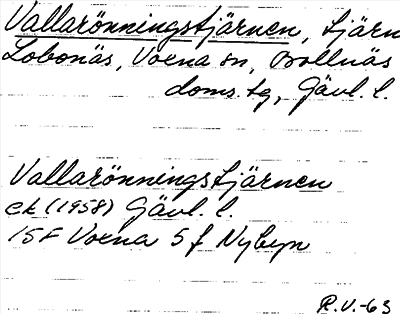 Vallarönningstjärnen, tjärn
Lobonäs, Voxna sn, Bollnäs
doms. tg, Gävl. l.
Vallarönningstjärnen
ek (1958) Gävl. l.
15F Voxna 5 f Nybyn
R.V.-63